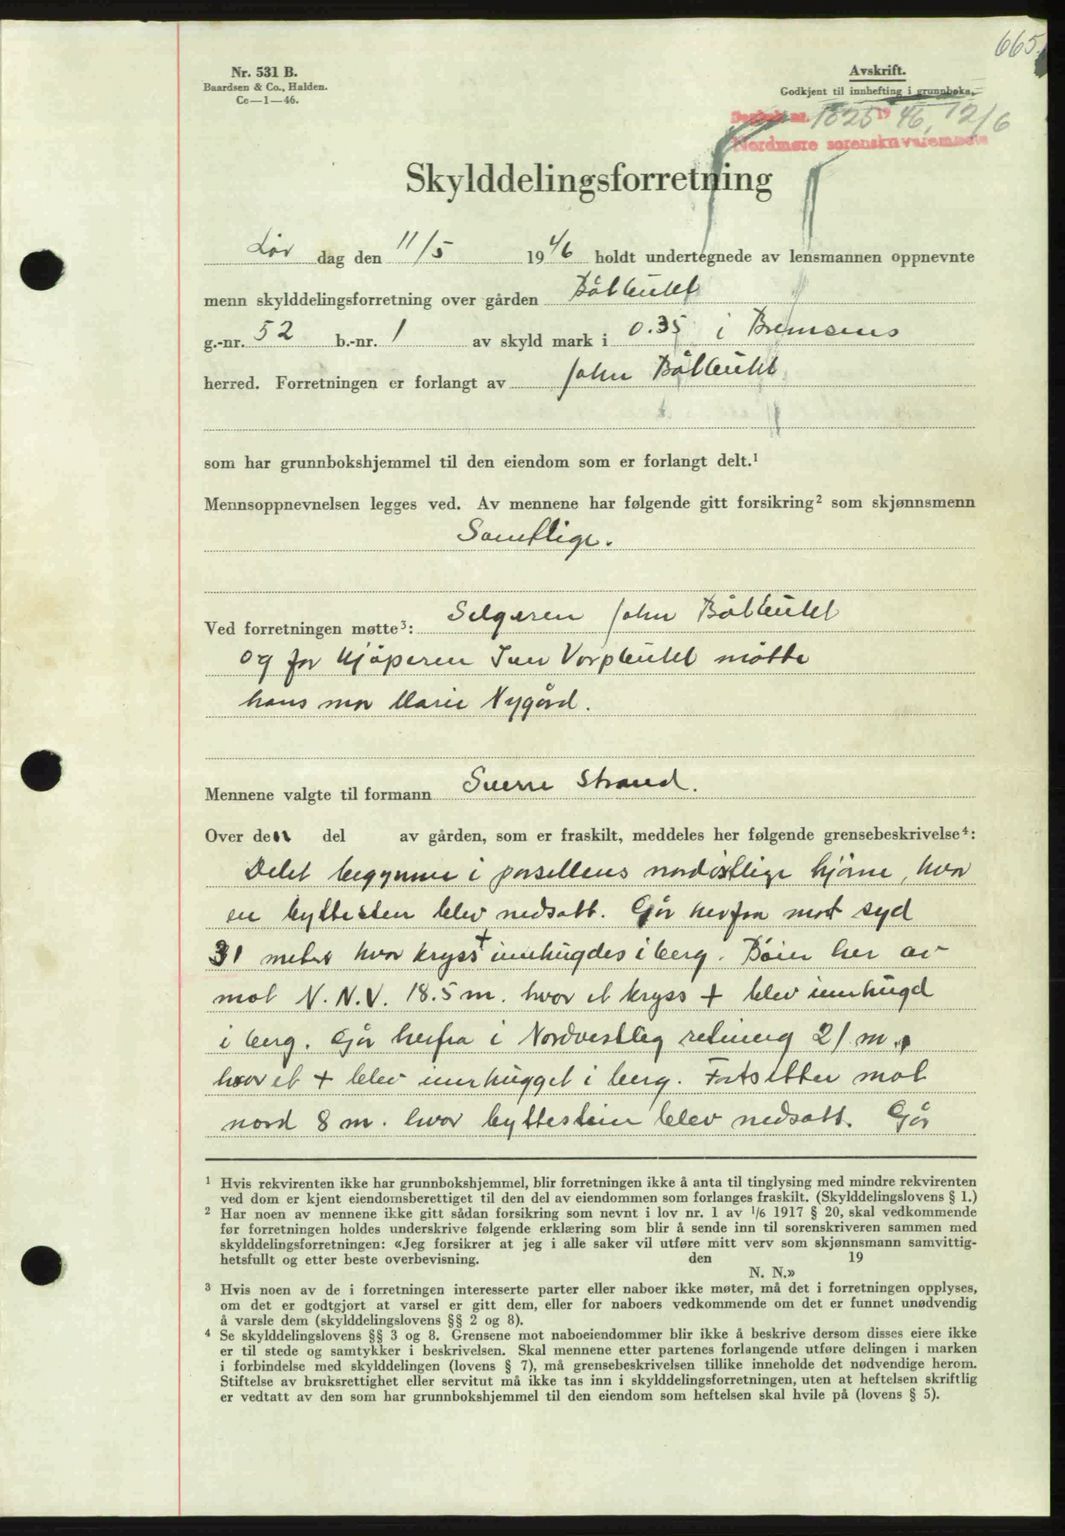 665.
Nr. 531 B.
Baardsen & Co., Halden.
Cc—1—46.
Avskrift.
Godkjent til innhefting i grunnboka.
Dagbok nr. 1525 19 46, 12/6
Nordmøre sorenskriverembete
Skylddelingsforretning
Lør dag den 11/5 1946 holdt undertegnede av lensmannen oppnevnte
menn skylddelingsforretning over gården
g.-nr. 52 b.-nr. 1 av skyld mark i 0.35 i Bremsnes
herred. Forretningen er forlangt av John
som har grunnbokshjemmel til den eiendom som er forlangt delt.¹
Mennsoppnevnelsen legges ved. Av mennene har følgende gitt forsikring² som skjønnsmenn
Samtlige.
Ved forretningen møtte³: Selgeren John
og for kjøperen møtte
hans mor Marie Nygård.
Mennene valgte til formann Sverre Strand.
Over den del av gården, som er fraskilt, meddeles her følgende grensebeskrivelse⁴:
Delet begynner i parsellens nordøstlige hjørne, hvor
en byttesten blev nedsatt. Går herfra mot syd
31 meter hvor kryss + innhugdes i berg. Bøier her av
mot N.N.V. 18.5 m. hvor et kryss + blev innhugd
i berg. Går herfra i Nordvestlig retning 21 m.
hvor et + blev innhugget i berg. Fortsetter mot
nord 8 m. hvor byttestein blev nedsatt. Går
¹ Hvis rekvirenten ikke har grunnbokshjemmel, blir forretningen ikke å anta til tinglysing med mindre rekvirenten
ved dom er kjent eiendomsberettiget til den del av eiendommen som forlanges fraskilt. (Skylddelingslovens § 1.)
² Har noen av mennene ikke gitt sådan forsikring som nevnt i lov nr. 1 av 1/6 1917 § 20, skal vedkommende
før forretningen holdes underskrive følgende erklæring som blir å sende inn til sorenskriveren sammen med
skylddelingsforretningen: «Jeg forsikrer at jeg i alle saker vil utføre mitt verv som skjønnsmann samvittig-
hetsfullt og etter beste overbevisning. den 19
N. N.»
³ Hvis noen av de i forretningen interesserte parter eller naboer ikke møter, må det i forretningen opplyses,
om det er godtgjort at varsel er gitt dem, eller for naboers vedkommende om det er funnet unødvendig
å varsle dem (skylddelingslovens §§ 2 og 8).
⁴ Se skylddelingslovens §§ 3 og 8. Grensene mot naboeiendommer blir ikke å beskrive dersom disses eiere ikke
er til stede og samtykker i beskrivelsen. Skal mennene etter partenes forlangende utføre delingen i marken
i forbindelse med skylddelingen (lovens § 7), må grensebeskrivelsen tillike inneholde det nødvendige herom.
Stiftelse av bruksrettighet eller servitut må ikke tas inn i skylddelingsforretningen, uten at heftelsen skriftlig
er vedtatt av den som har grunnbokshjemmel til den eiendom som heftelsen skal hvile på (lovens § 5).